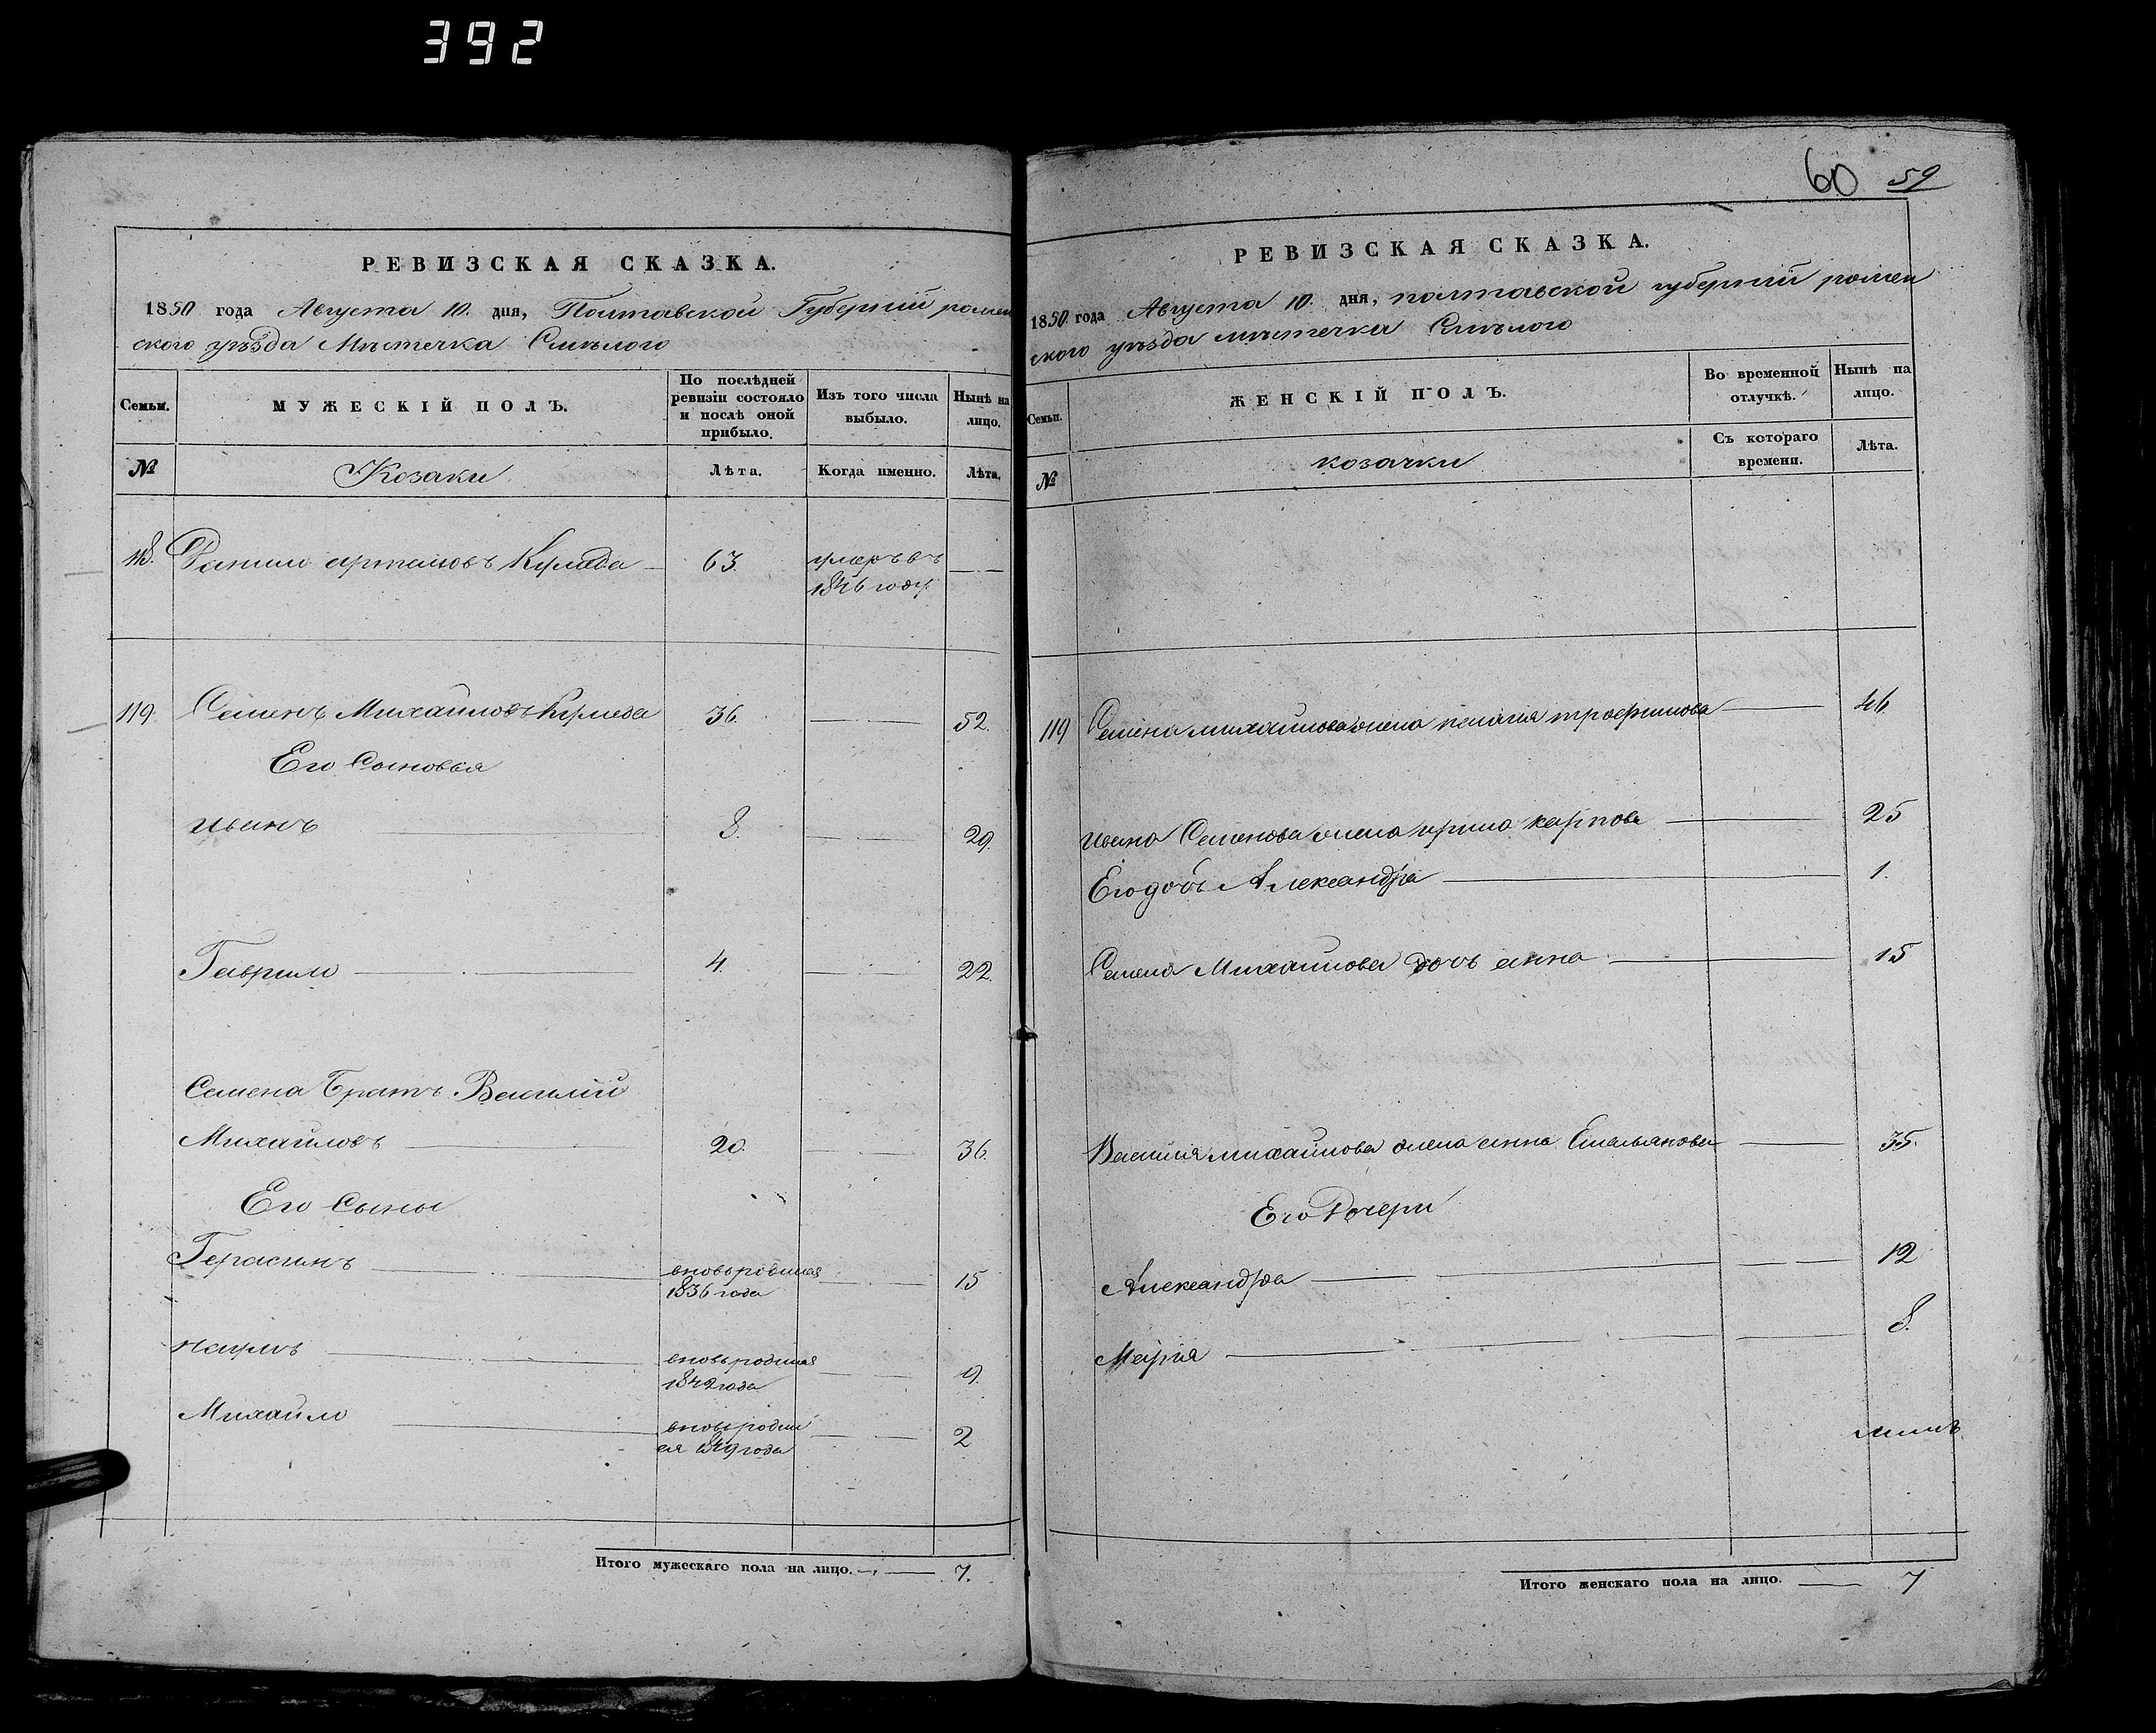 392
РЕВИЗСКАЯ СКАЗКА.
1850 года Августа 10. дня, Полтавской Губерніи ромен
ского уѣзда Мѣстечка Смѣлого
Семьи.
МУЖЕСКІЙ ПОЛЪ.
По послѣдней ревизіи состояло и послѣ оной прибыло.
Изъ того числа выбыло.
Нынѣ на лицо.
№
Козаки
Лѣта.
Когда именно.
Лѣта.
118. Данило артемовъ 63. умеръ въ
1846 году. —
119. Семенъ Михайловъ 36. — 52.
Его Сыновья
иванъ — 8. — 29.
Гаврило — 4. — 22.
Семена Братъ Василій
Михайловъ — 20. — 36.
Его Сыны
Герасимъ — вновьродился
1836 года — 15
наумъ — вновьродился
1842 года — 9.
Михайло — вновьродил
ся 1849 года — 2
Итого мужескаго пола на лицо. — 7.
60 59
РЕВИЗСКАЯ СКАЗКА.
1850 года Августа 10. дня, полтавской губерніи ромен
ского уѣзда мѣстечка Смѣлого
Семьи.
ЖЕНСКІЙ ПОЛЪ.
Во временной отлучкѣ.
Нынѣ на лицо.
№
козачки
Съ котораго времени.
Лѣта.
119 Семена михайлова жена пелагия трофимова — 46.
ивана Семенова жена ирина карпова — 25
Его дочь Александра — 1.
Семена Михайлова дочь анна — 15
Василия михайлова жена анна Емельянова — 35.
Его Дочери
Александра — 12
Мария — 8.
Итого женскаго пола на лицо. — 7